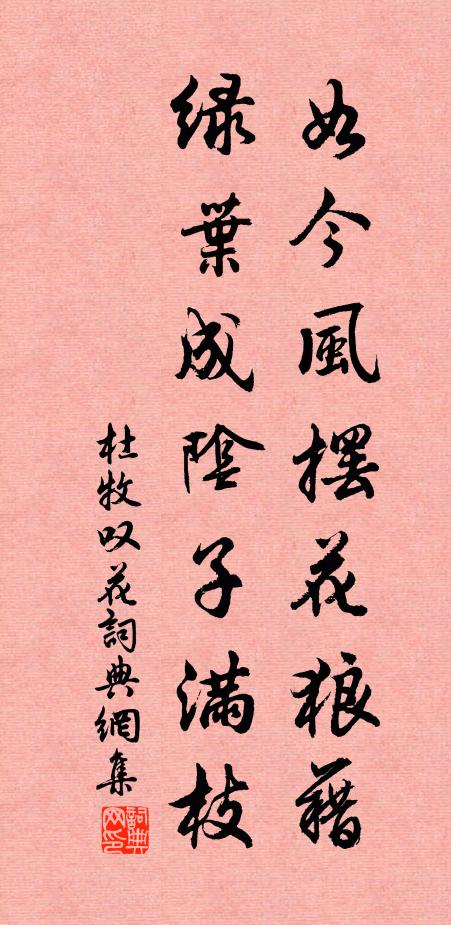 如今風擺花狼藉
绿葉成陰子滿枝
杜牧叹花詞典網集
詞典网印